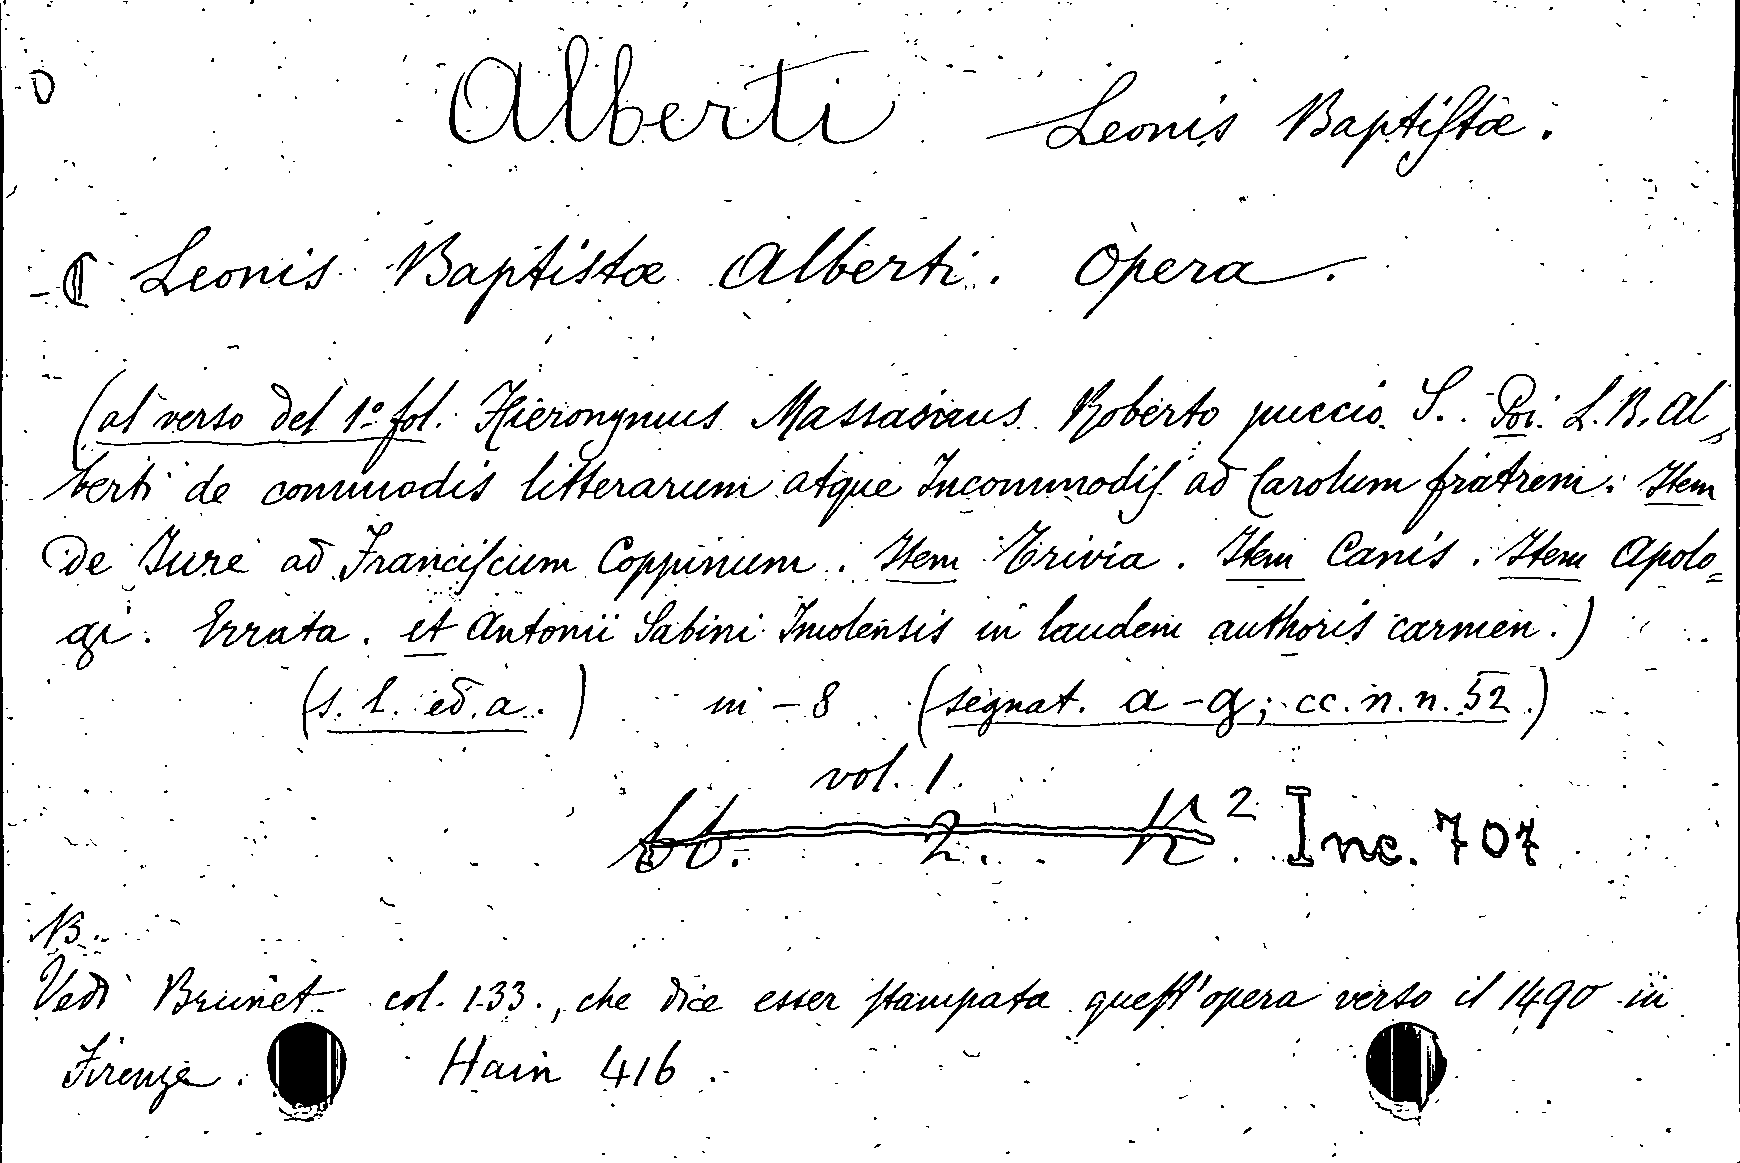 Alberti Leonis Baptiſtæ.
Leonis Baptistæ Alberti. Opera.
(al verso del 1º fol. Hieronymus Massainus Roberto puccio. S. Poi. L. B. Al-
berti de commodis litterarum atque Incommodiſ ad Carolum fratrem. Item
De Jure ad Franciſcum Coppinum. Item Trivia. Item Canis. Item Apolo=
gi. Errata. et Antonii Sabini Imolensis in laudem authoris carmen.)
(s. l. ed. a.) in-8 (segnat. a-g; cc. n. n. 52.)
vol. 1.
bb. 2. K² Inc. 707
NB.
Vedi Brunet col. 133., che dice esser ſtampata queſt'opera verso il 1490 in
Firenze. Hain 416.